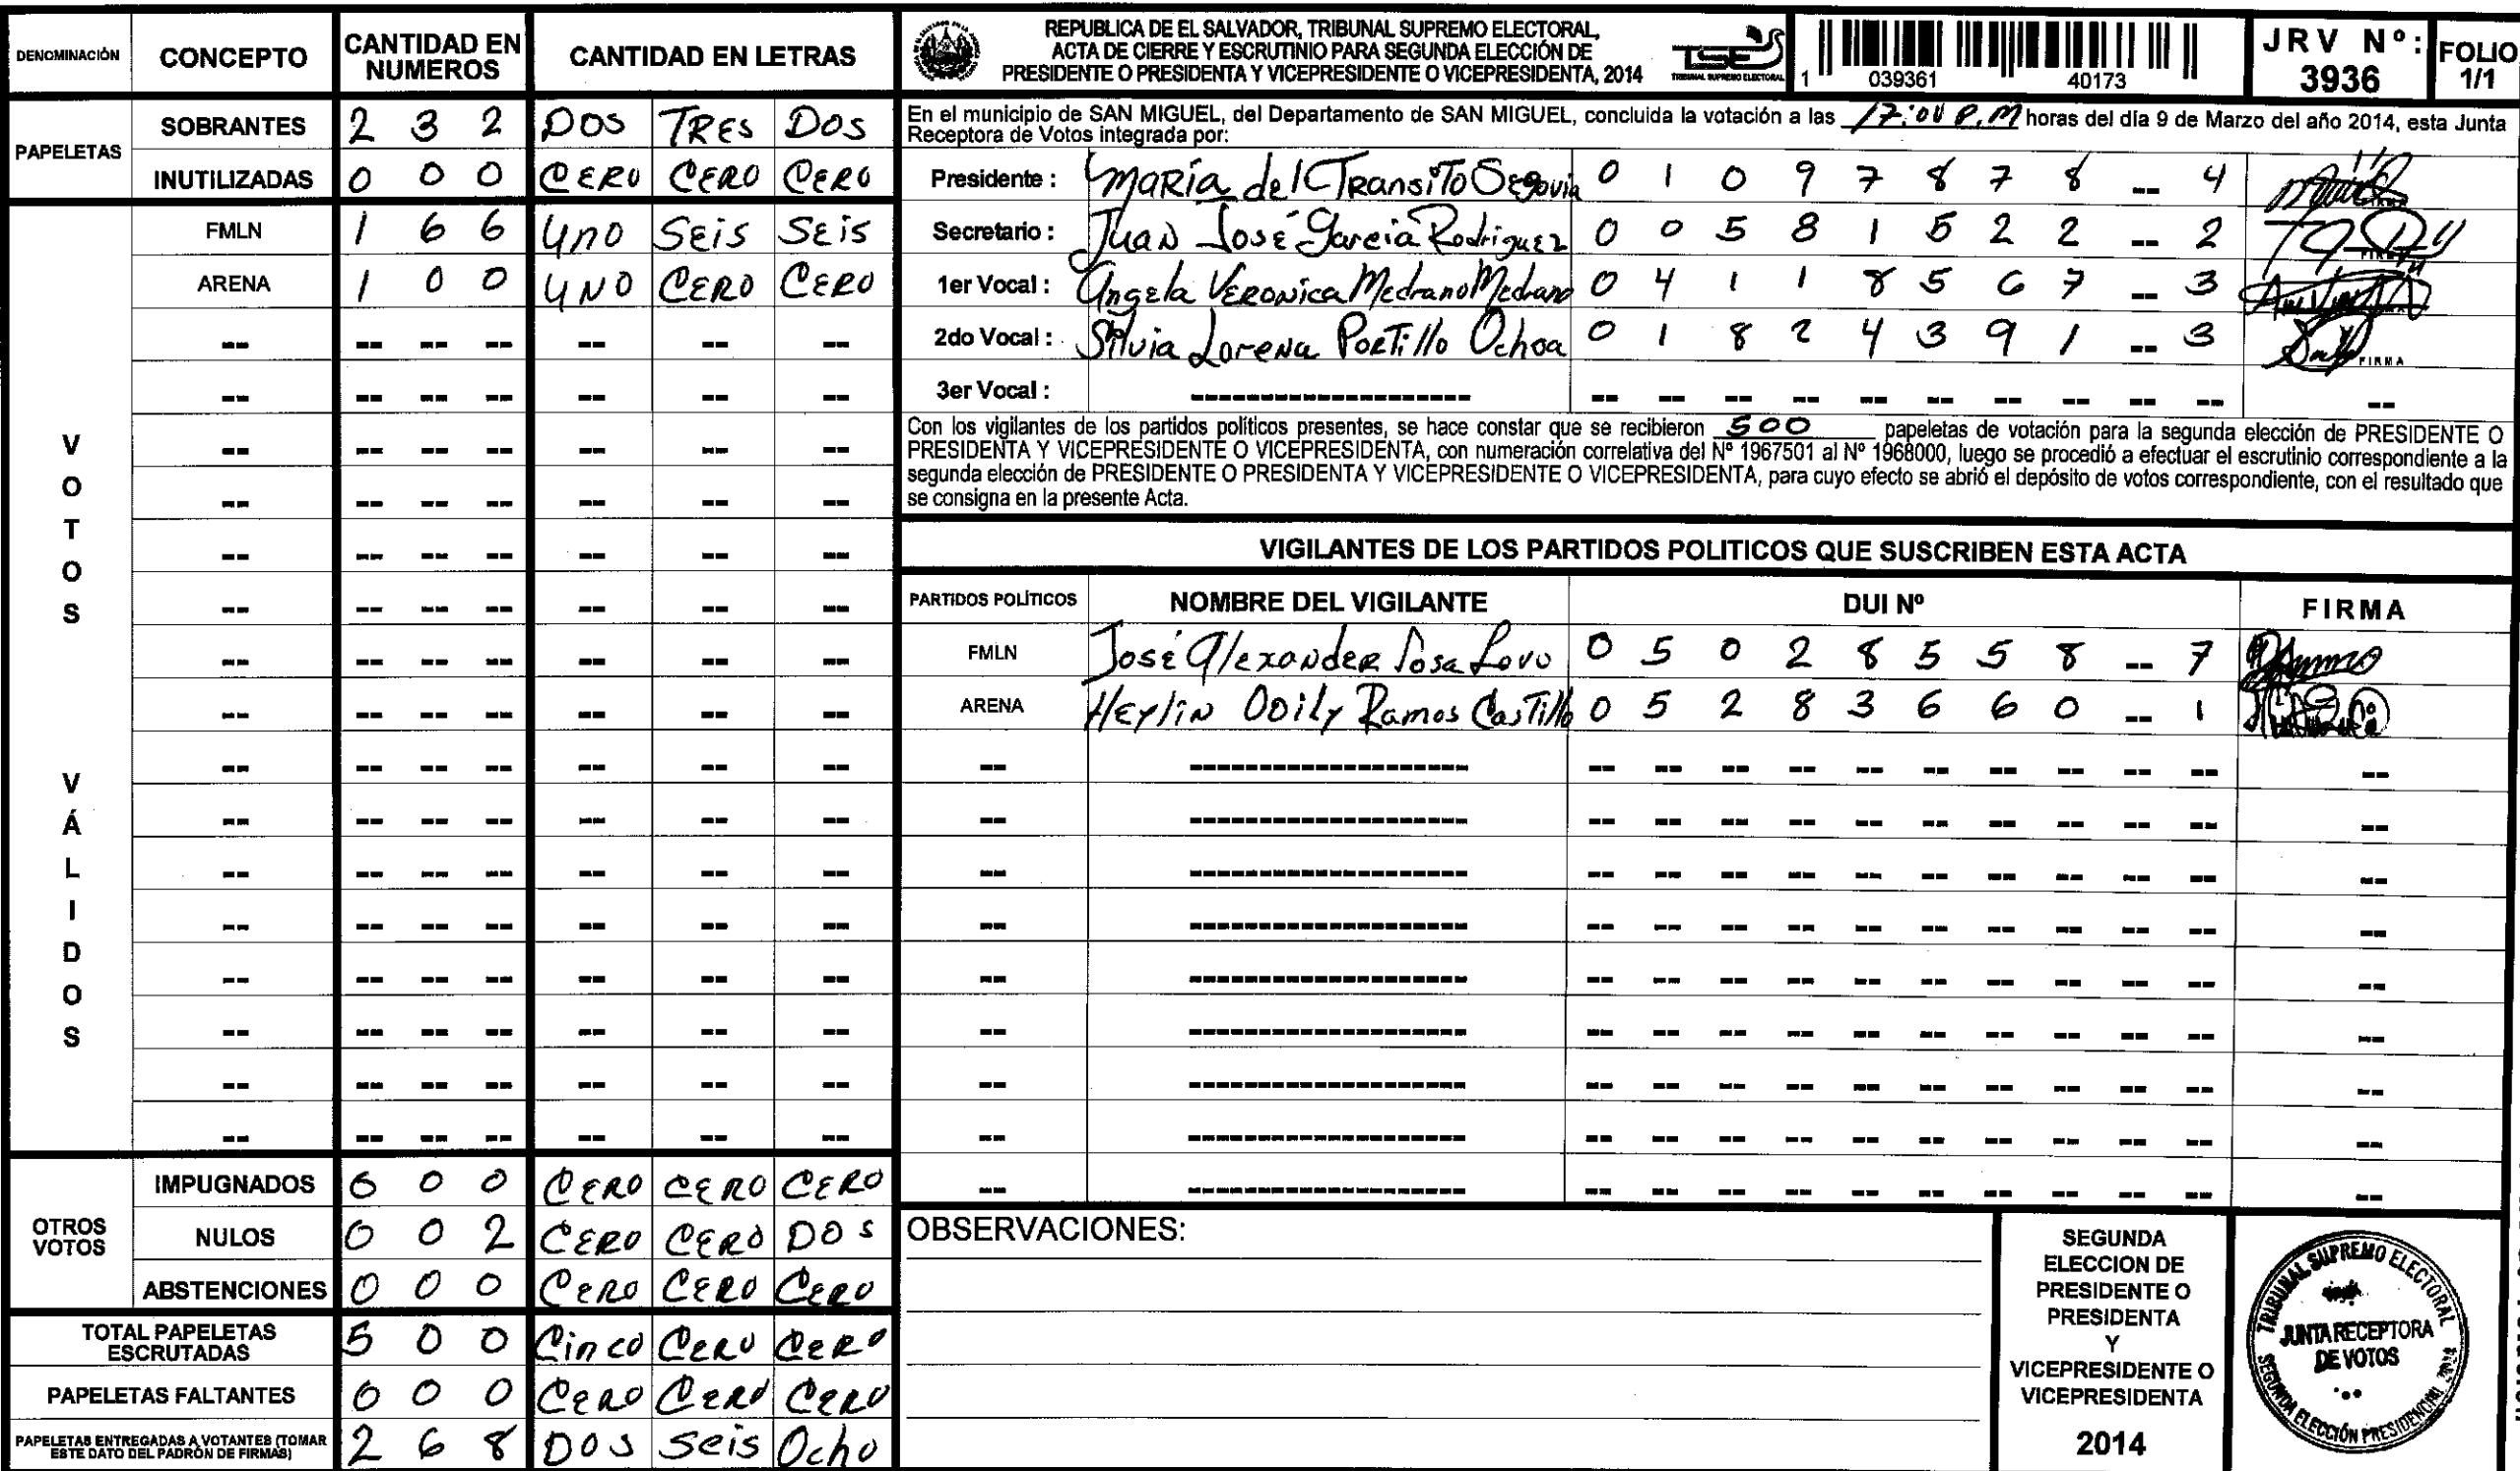 DENOMINACIÓN CONCEPTO CANTIDAD EN NUMEROS CANTIDAD EN LETRAS
PAPELETAS
SOBRANTES 2 3 2 DOS TRES DOS
INUTILIZADAS 0 0 0 CERO CERO CERO
VOTOS VÁLIDOS
FMLN 1 6 6 UNO SEIS SEIS
ARENA 1 0 0 UNO CERO CERO
OTROS VOTOS
IMPUGNADOS 0 0 0 CERO CERO CERO
NULOS 0 0 2 CERO CERO DOS
ABSTENCIONES 0 0 0 CERO CERO CERO
TOTAL PAPELETAS ESCRUTADAS 5 0 0 Cinco CERO CERO
PAPELETAS FALTANTES 0 0 0 CERO CERO CERO
PAPELETAS ENTREGADAS A VOTANTES (TOMAR ESTE DATO DEL PADRÓN DE FIRMAS) 2 6 8 DOS Seis Ocho
REPUBLICA DE EL SALVADOR, TRIBUNAL SUPREMO ELECTORAL,
ACTA DE CIERRE Y ESCRUTINIO PARA SEGUNDA ELECCIÓN DE
PRESIDENTE O PRESIDENTA Y VICEPRESIDENTE O VICEPRESIDENTA, 2014
TSE
TRIBUNAL SUPREMO ELECTORAL
1 039361 40173
JRV Nº: 3936
FOLIO 1/1
En el municipio de SAN MIGUEL, del Departamento de SAN MIGUEL, concluida la votación a las 17:00 P.M horas del día 9 de Marzo del año 2014, esta Junta
Receptora de Votos integrada por:
Presidente : María del Transito Segovia 0 1 0 9 7 8 7 8 -- 4
Secretario : Juan José Garcia Rodriguez 0 0 5 8 1 5 2 2 -- 2
1er Vocal : Angela Veronica Medrano Medrano 0 4 1 1 8 5 6 7 -- 3
2do Vocal : Silvia Lorena Portillo Ochoa 0 1 8 2 4 3 9 1 -- 3 FIRMA
3er Vocal :
Con los vigilantes de los partidos políticos presentes, se hace constar que se recibieron 500 papeletas de votación para la segunda elección de PRESIDENTE O
PRESIDENTA Y VICEPRESIDENTE O VICEPRESIDENTA, con numeración correlativa del Nº 1967501 al Nº 1968000, luego se procedió a efectuar el escrutinio correspondiente a la
segunda elección de PRESIDENTE O PRESIDENTA Y VICEPRESIDENTE O VICEPRESIDENTA, para cuyo efecto se abrió el depósito de votos correspondiente, con el resultado que
se consigna en la presente Acta.
VIGILANTES DE LOS PARTIDOS POLITICOS QUE SUSCRIBEN ESTA ACTA
PARTIDOS POLÍTICOS NOMBRE DEL VIGILANTE DUI Nº FIRMA
FMLN José Alexander Sosa Lovo 0 5 0 2 8 5 5 8 -- 7
ARENA Heylin Odily Ramos Castillo 0 5 2 8 3 6 6 0 -- 1
OBSERVACIONES:
SEGUNDA
ELECCION DE
PRESIDENTE O
PRESIDENTA
Y
VICEPRESIDENTE O
VICEPRESIDENTA
2014
TRIBUNAL SUPREMO ELECTORAL
JUNTA RECEPTORA
DE VOTOS
SEGUNDA ELECCIÓN PRESIDENCIAL 2014